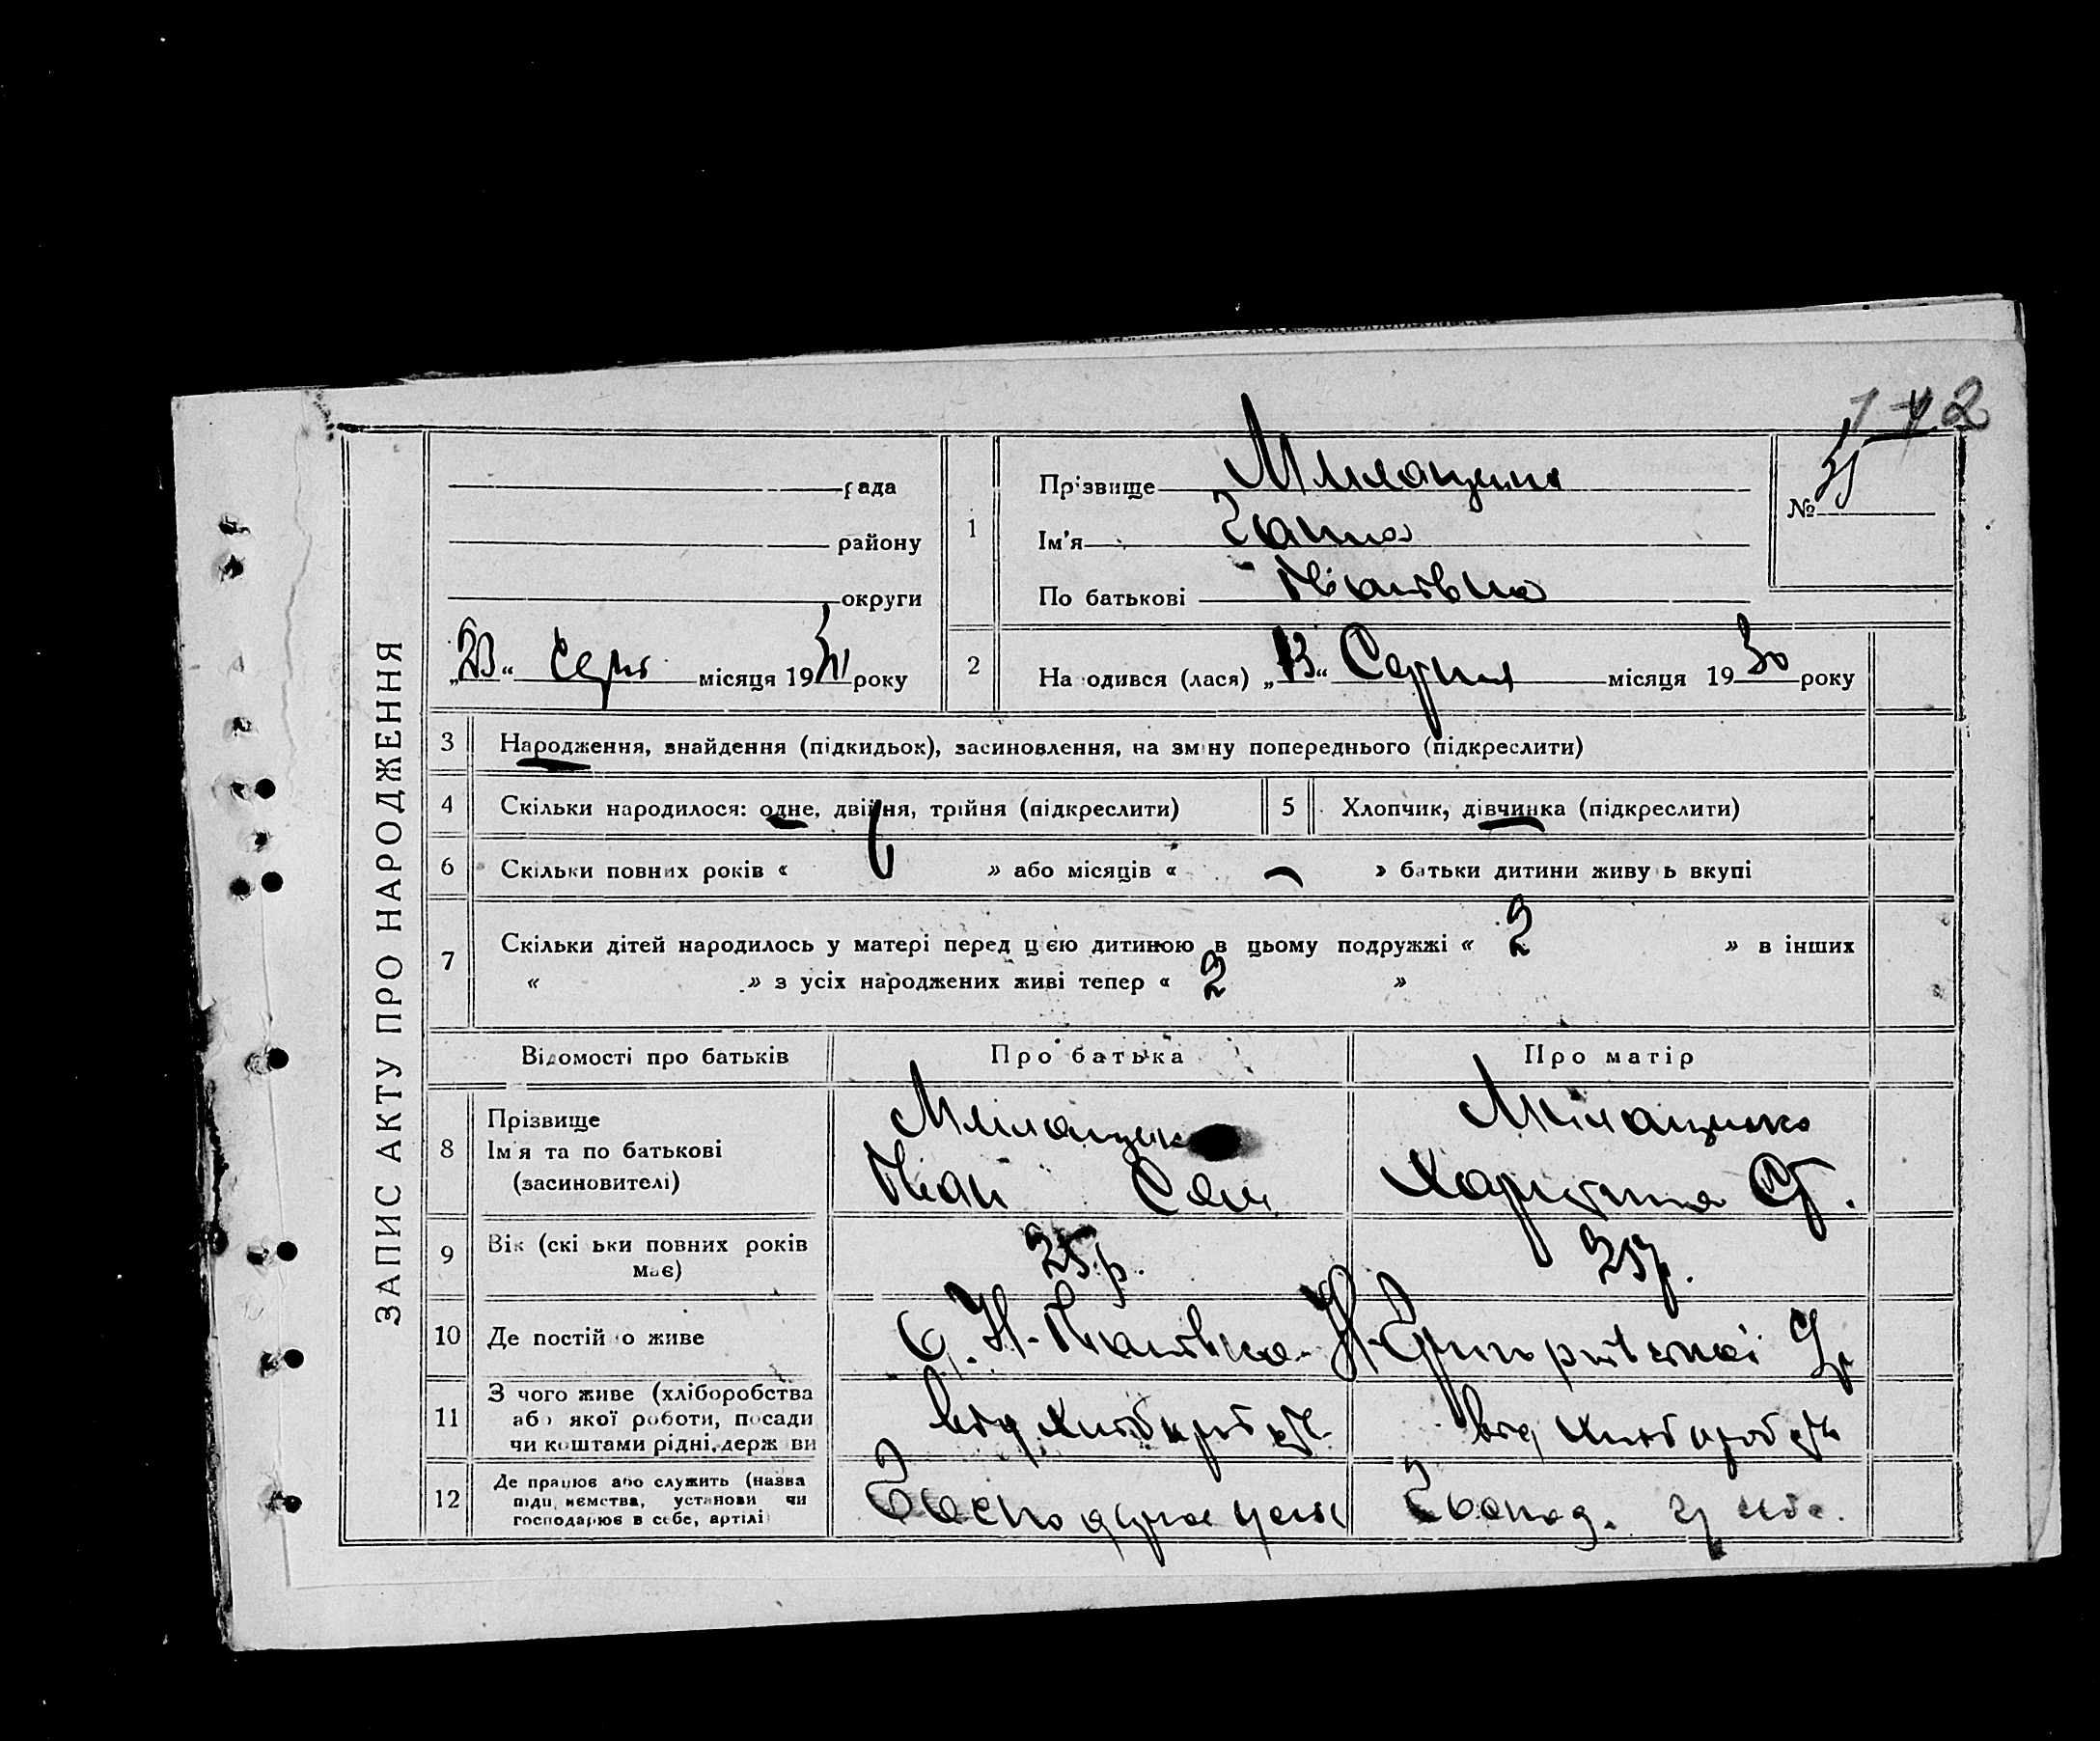 142
ЗАПИС АКТУ ПРО НАРОДЖЕННЯ
рада
району
округи
„23“ Серп. місяця 1930 року
1
Прізвище
Ім'я Ганна
По батькові Іванівна
№ 35
2
Народився (лася) „13“ Серпня місяця 1930 року
3 Народження, знайдення (підкидьок), засиновлення, на зміну попереднього (підкреслити)
4 Скільки народилося: одне, двійня, трійня (підкреслити)
5 Хлопчик, дівчинка (підкреслити)
6 Скільки повних років « 6 » або місяців « – » батьки дитини живуть вкупі
7 Скільки дітей народилось у матері перед цією дитиною в цьому подружжі « 2 » в інших
« » з усіх народжених живі тепер « 2 »
Відомості про батьків
Про батька
Про матір
8 Прізвище
Ім'я та по батькові
(засиновителі)
Іван Сем.
Христина
9 Вік (скільки повних років
має)
25 р.
25 р.
10 Де постійно живе
с. Н-Іванівка
11 З чого живе (хліборобства
або якої роботи, посади
чи коштами рідні, держави
від хлібороб.
від хлібороб.
12 Де працює або служить (назва
підприємства, установи чи
господарює в себе, артілі)
Господарює
Господ. у себе.